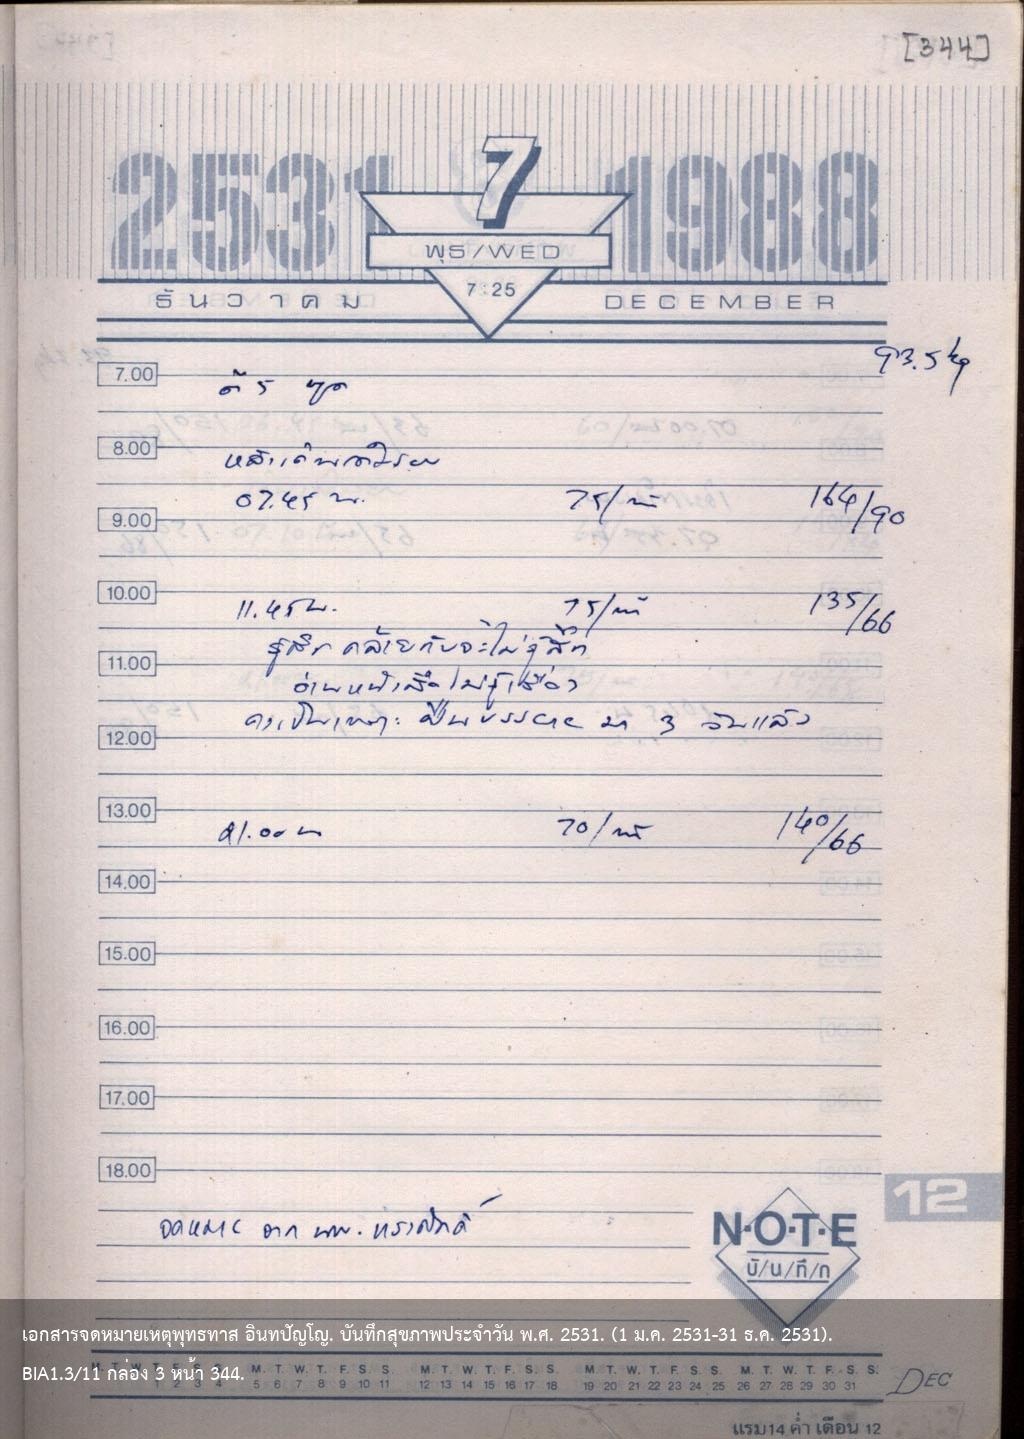 [344]
2531 7 1988
พุธ/WED
7:25
ธันวาคม DECEMBER
93.5 kg
7.00
ตี 5
8.00
07.45 น. 75/นาที 164/90
9.00
10.00
11.45 น. 75/นาที 135/66
รู้สึกคล้ายกับจะไม่รู้สึก
11.00
อ่านหนังสือไม่รู้เรื่อง
คงเป็นเพราะ ฝืนบรรยาย มา 3 วันแล้ว
12.00
13.00
21.00 น 70/นาที 140/66
14.00
15.00
16.00
17.00
18.00
12
จดหมาย จาก นพ.
N·O·T·E
บั/น/ทึ/ก
เอกสารจดหมายเหตุพุทธทาส อินทปัญโญ. บันทึกสุขภาพประจำวัน พ.ศ. 2531. (1 ม.ค. 2531-31 ธ.ค. 2531).
BIA1.3/11 กล่อง 3 หน้า 344.
M. T. W. T. F. S. S. M. T. W. T. F. S. S. M. T. W. T. F. S. S. M. T. W. T. F. S. S. M. T. W. T. F. S. S.
1 2 3 4 5 6 7 8 9 10 11 12 13 14 15 16 17 18 19 20 21 22 23 24 25 26 27 28 29 30 31
DEC
แรม 14 ค่ำ เดือน 12